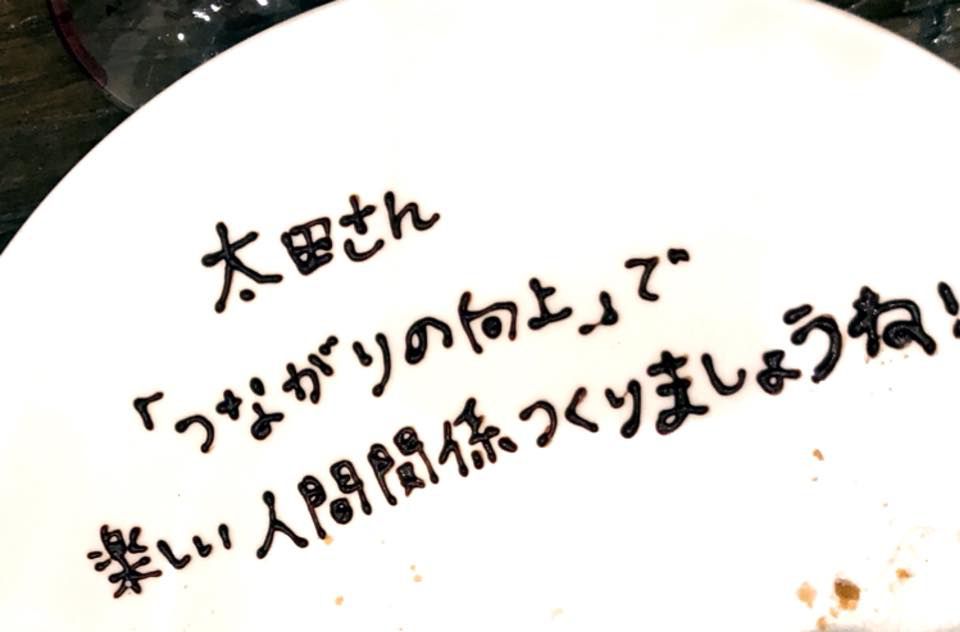 太田さん
「つながりの向上」で
楽しい人間関係つくりましょうね!